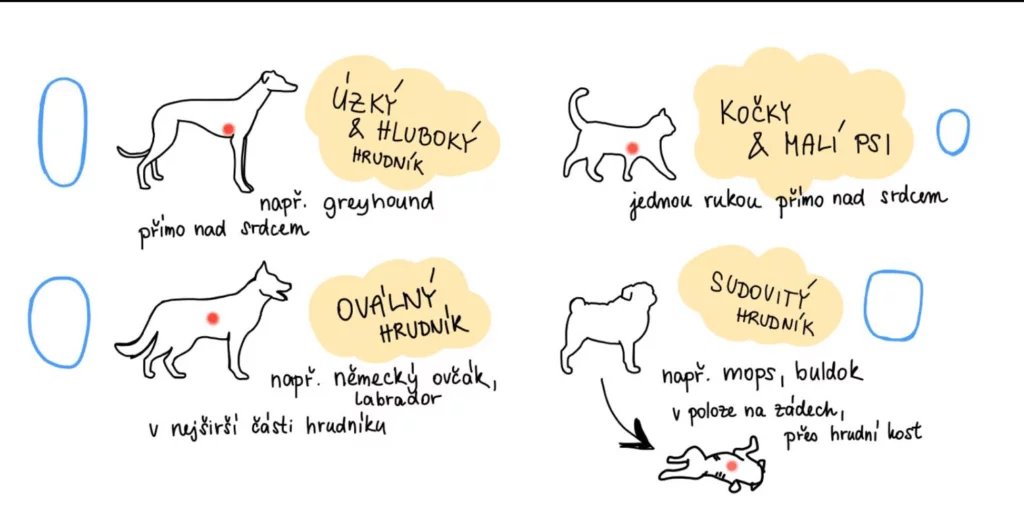 ÚZKÝ
& HLUBOKÝ
HRUDNÍK
např. greyhound
přímo nad srdcem
KOČKY
& MALÍ PSI
jednou rukou přímo nad srdcem
OVÁLNÝ
HRUDNÍK
např. německý ovčák,
labrador
v nejširší části hrudníku
SUDOVITÝ
HRUDNÍK
např. mops, buldok
v poloze na zádech,
přes hrudní kost